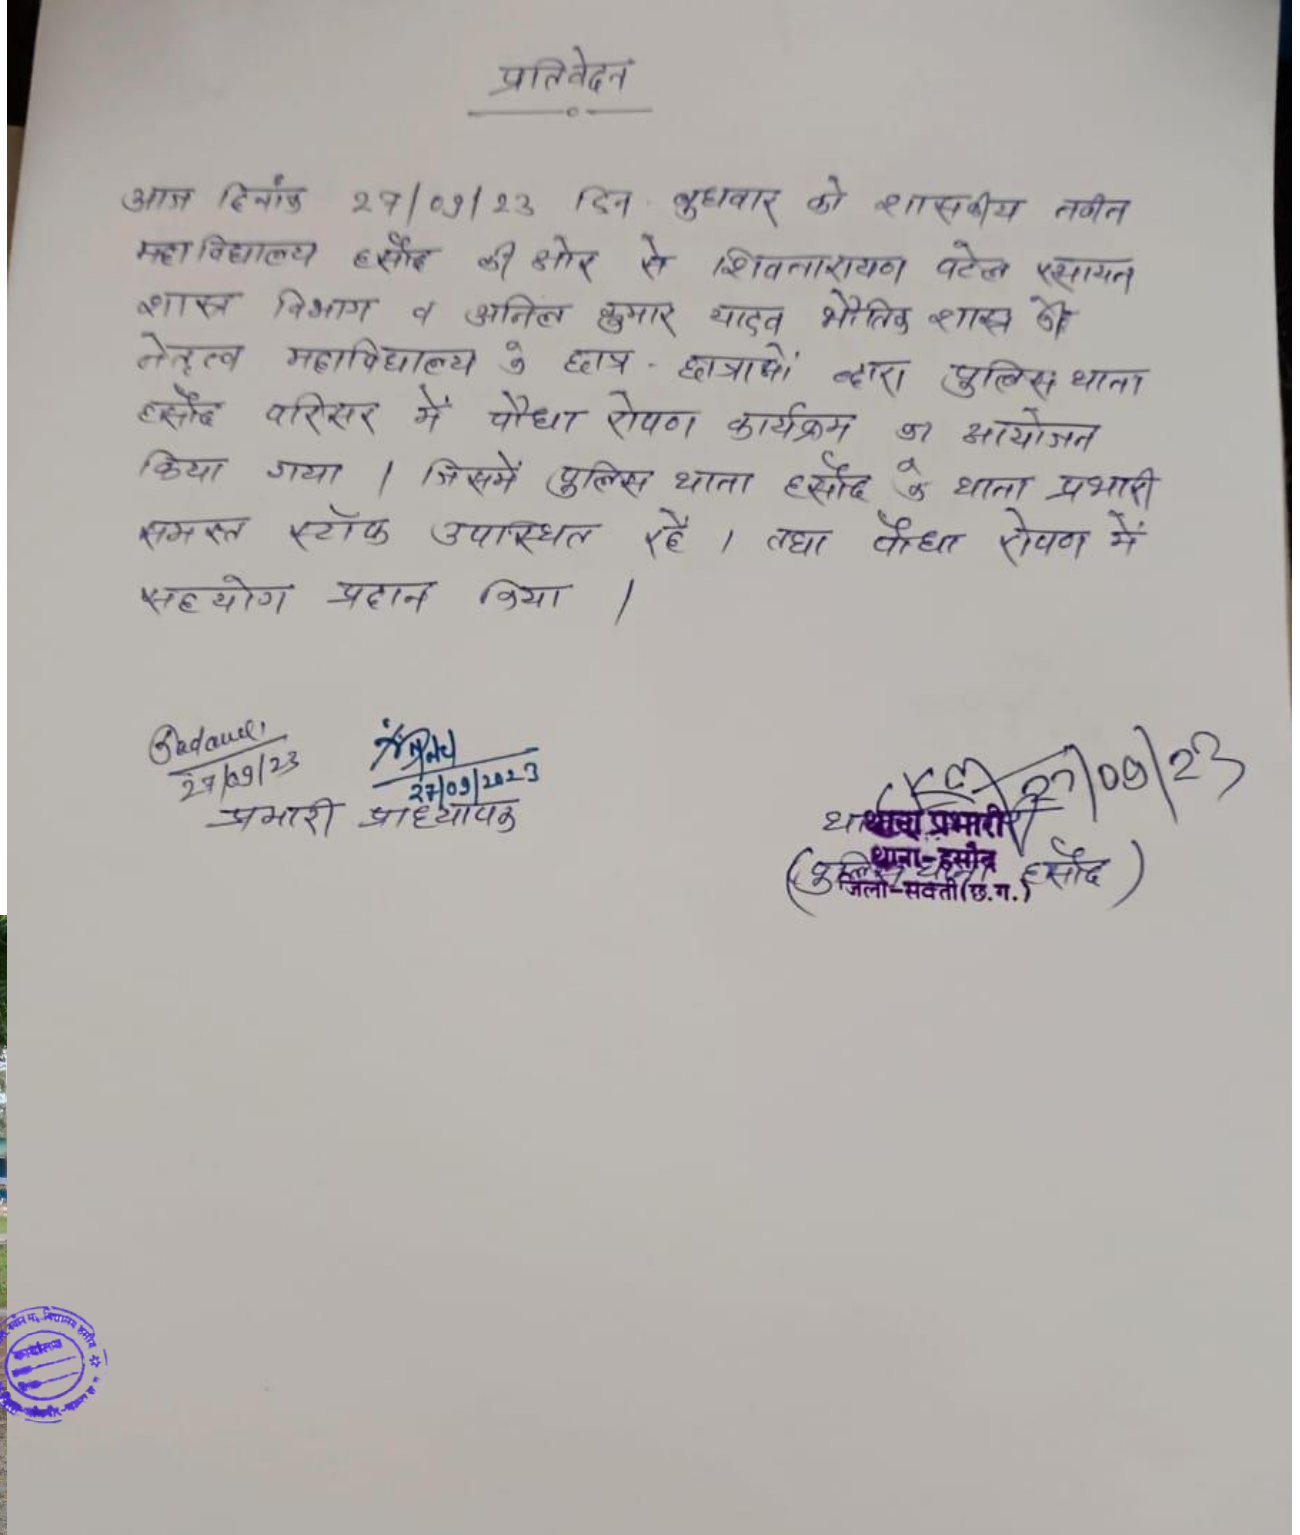 प्रतिवेदन
आज दिनांक 27/09/23 दिन बुधवार को शासकीय नवीन
महाविद्यालय हसौद की ओर से शिवनारायण पटेल रसायन
शास्त्र विभाग व अनिल कुमार यादव भौतिक शास्त्र के
नेतृत्व महाविद्यालय के छात्र - छात्राओं व्दारा पुलिस थाना
हसौद परिसर में पौधा रोपण कार्यक्रम का आयोजन
किया गया । जिसमें पुलिस थाना हसौद के थाना प्रभारी
समस्त स्टॉफ उपास्थित रहें । तथा पौधा रोपण में
सहयोग प्रदान किया ।
27/09/23
27/09/2023
प्रभारी प्राध्यापक
27/09/23
थाना प्रभारी
थाना-हसौद
(पुलिस थाना हसौद)
जिला-सक्ती (छ.ग.)